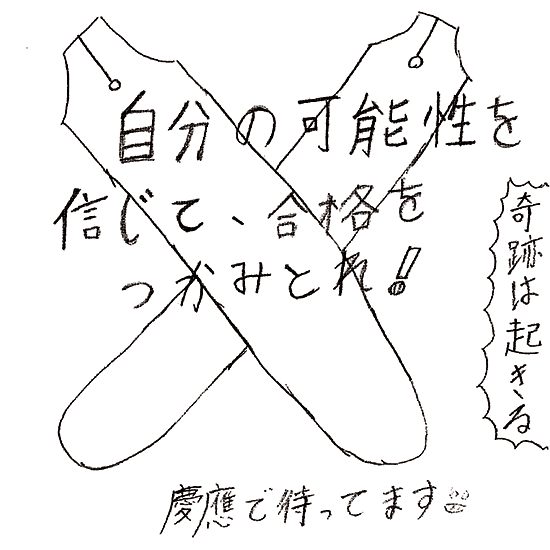 自分の可能性を
信じて、合格を
つかみとれ!
奇跡は起きる
慶應で待ってます